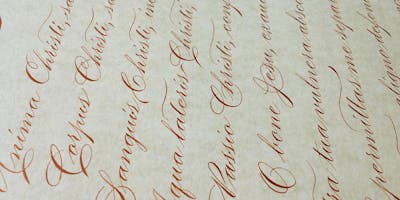 Anima Christi, sa
Corpus Christi, sa
Sanguis Christi, in
Aqua lateris Christi,
Passio Christi, con
O bone Jesu, exau
tra tua vulnera absc
permittas me sepa